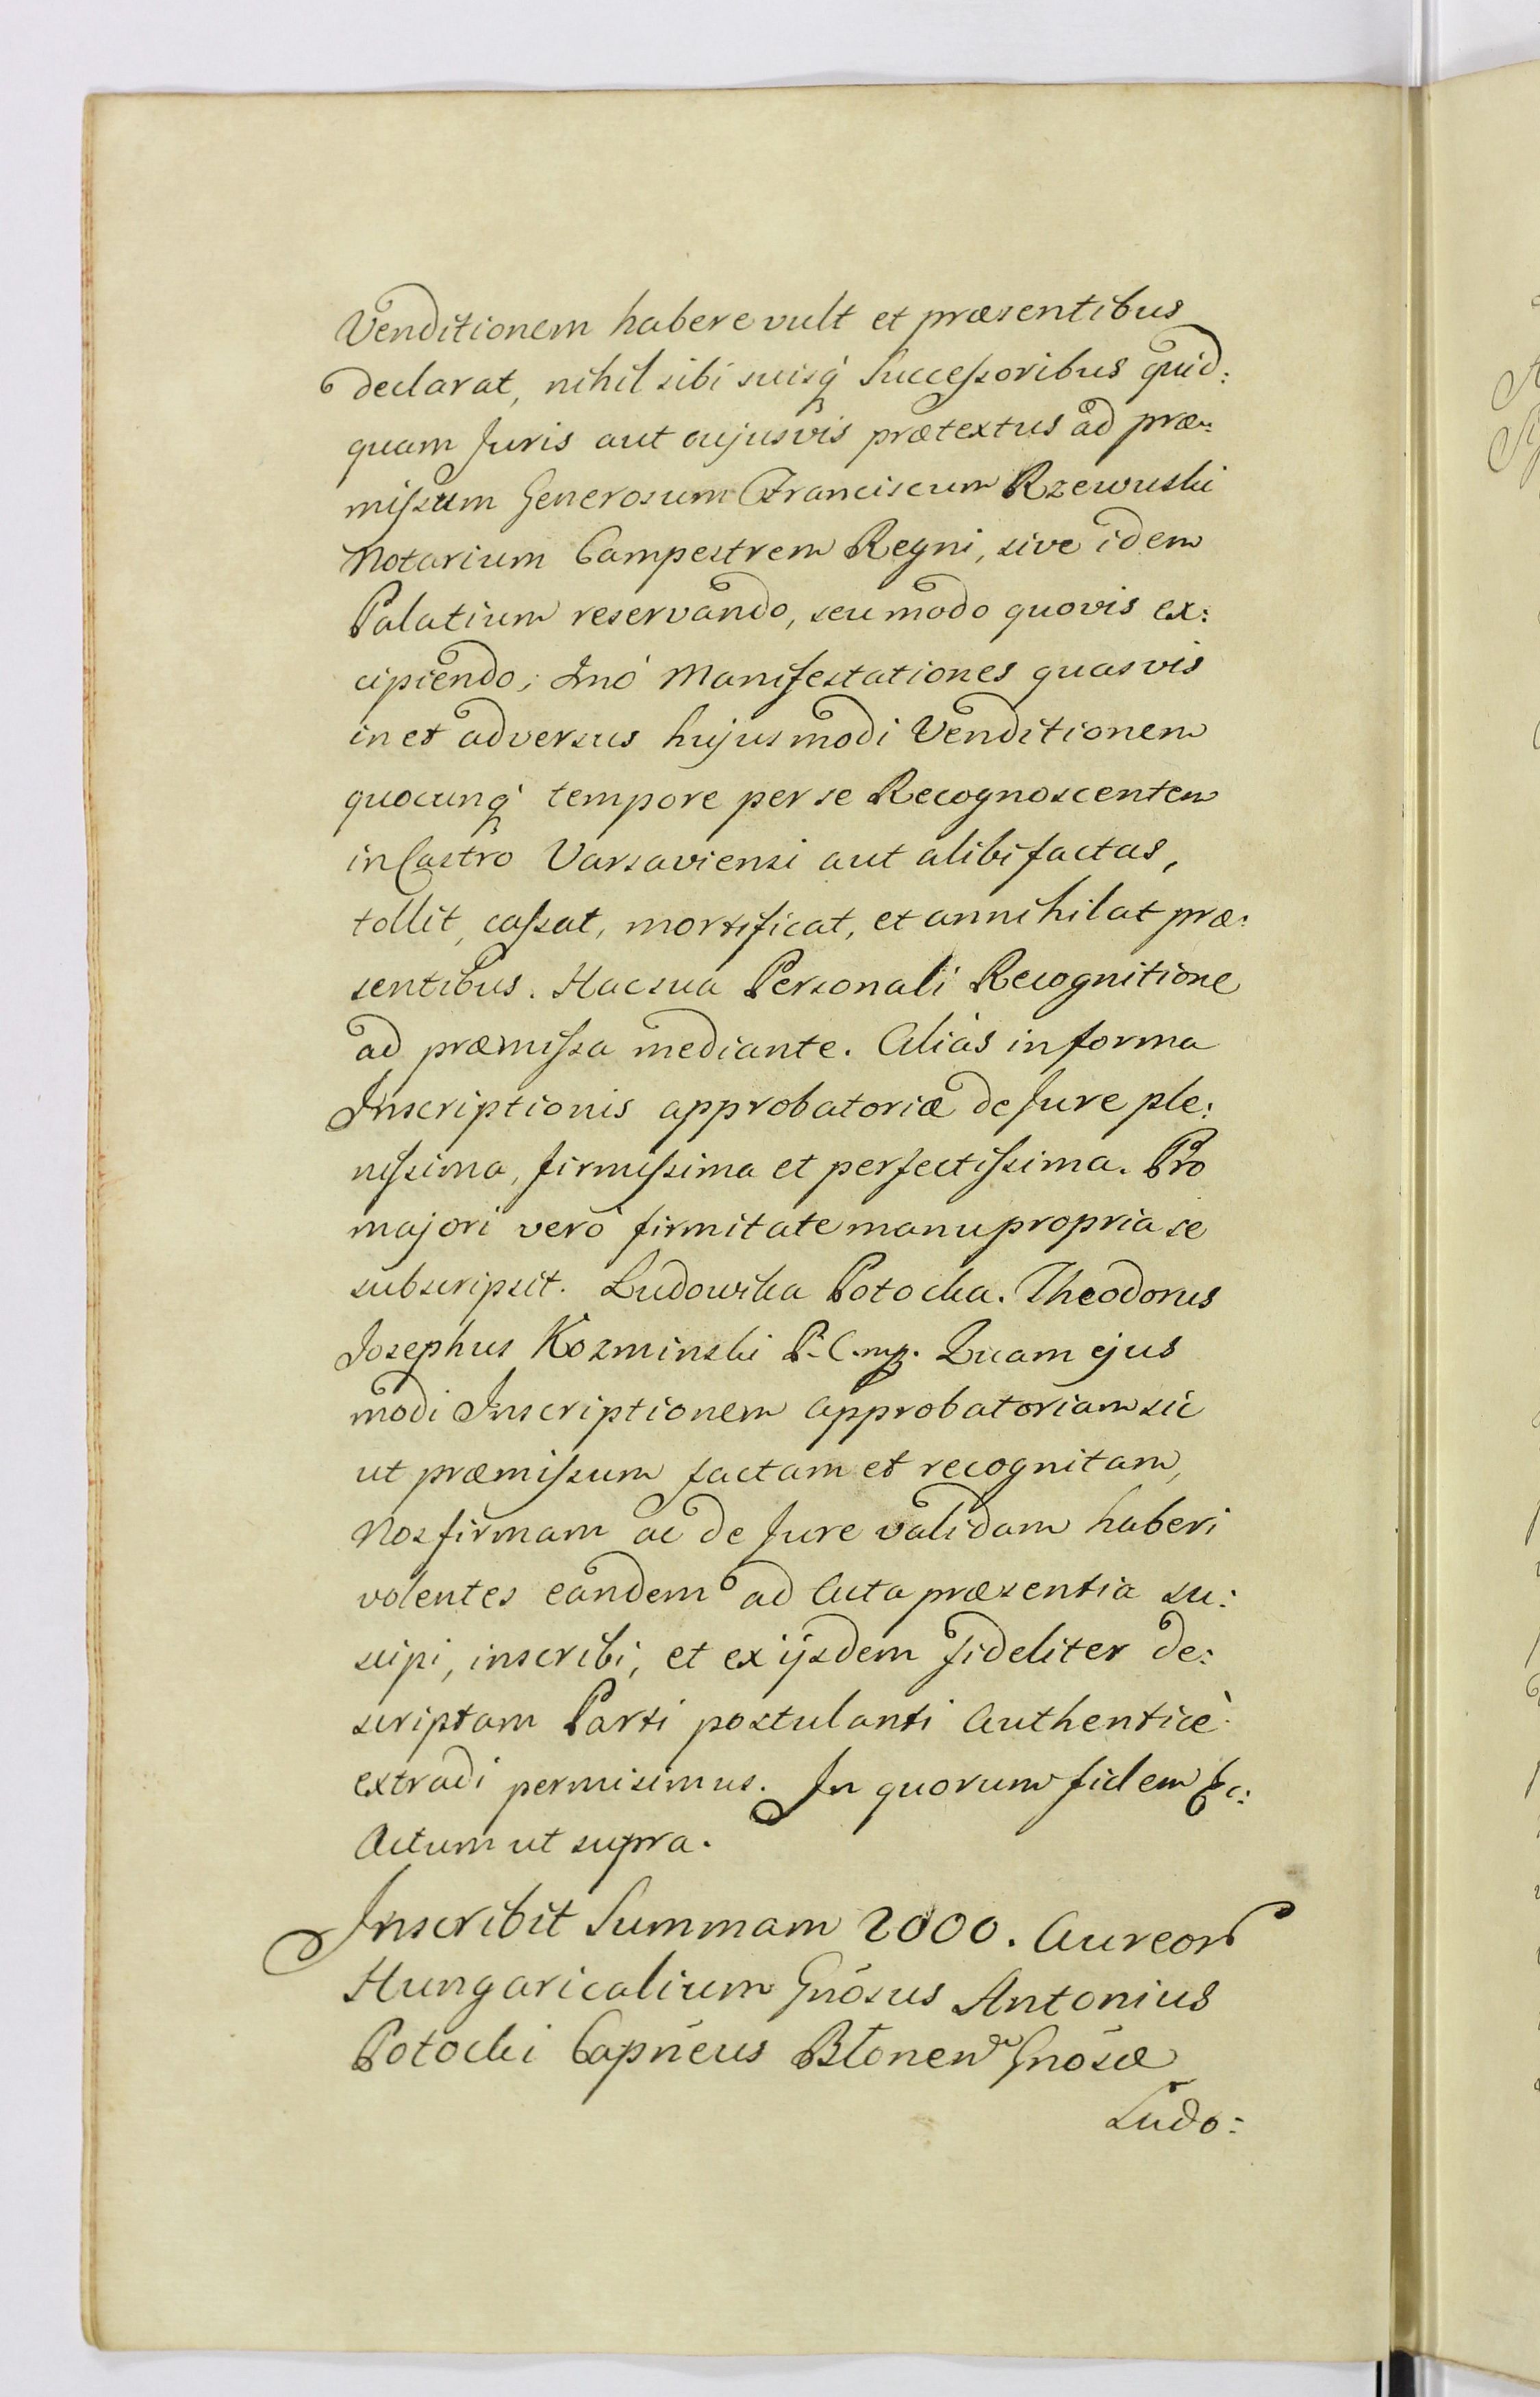 Venditionem habere vult et præsentibus
declarat, nihil sibi suisq́ Successoribus quid:
quam Juris aut cujusvis prætextus ad præ:
missum Generosum Franciscum Rzewuski
Notarium Campestrem Regni, sive idem
Palatium reservando, seu modo quovis ex:
cipiendo; Imò Manifestationes quasvis
in et adversus hujusmodi Venditionem
quocunq́ tempore per se Recognoscentem
in Castro Varsaviensi aut alibi factas,
tollit, cassat, mortificat, et annihilat præ:
sentibus. Hac sua Personali Recognitione
ad præmissa mediante. Aliàs in forma
Inscriptionis approbatoriæ de Jure ple:
nissima, firmissima et perfectissima. Pro
majori verò firmitate manu propria se
subscripsit. Ludowika Potocka. Theodorus
Josephus Kozminski P. C. mp. Quam ejus
modi Inscriptionem approbatoriam sic
ut præmissum factam et recognitam,
Nos firmam ac de Jure validam haberi
volentes eandem ad Acta præsentia su:
scipi, inscribi, et ex ijsdem fideliter de:
scriptam Parti postulanti Authenticè
extradi permisimus. In quorum fidem &c:
Actum ut supra.
Inscribit Summam 2000. Aureor
Hungaricalium Gnōsus Antonius
Potocki Capnēus Blonen Gnōsæ
Ludo: